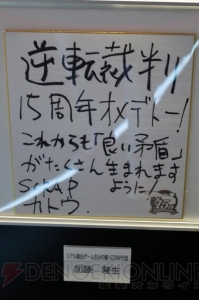 逆転裁判
15周年オメデトー!
これからも「良い矛盾」
がたくさん生まれます
ように!
SCRAP
カトウ.
15th
加藤隆生
DENGEKI ONLINE
電撃オンライン